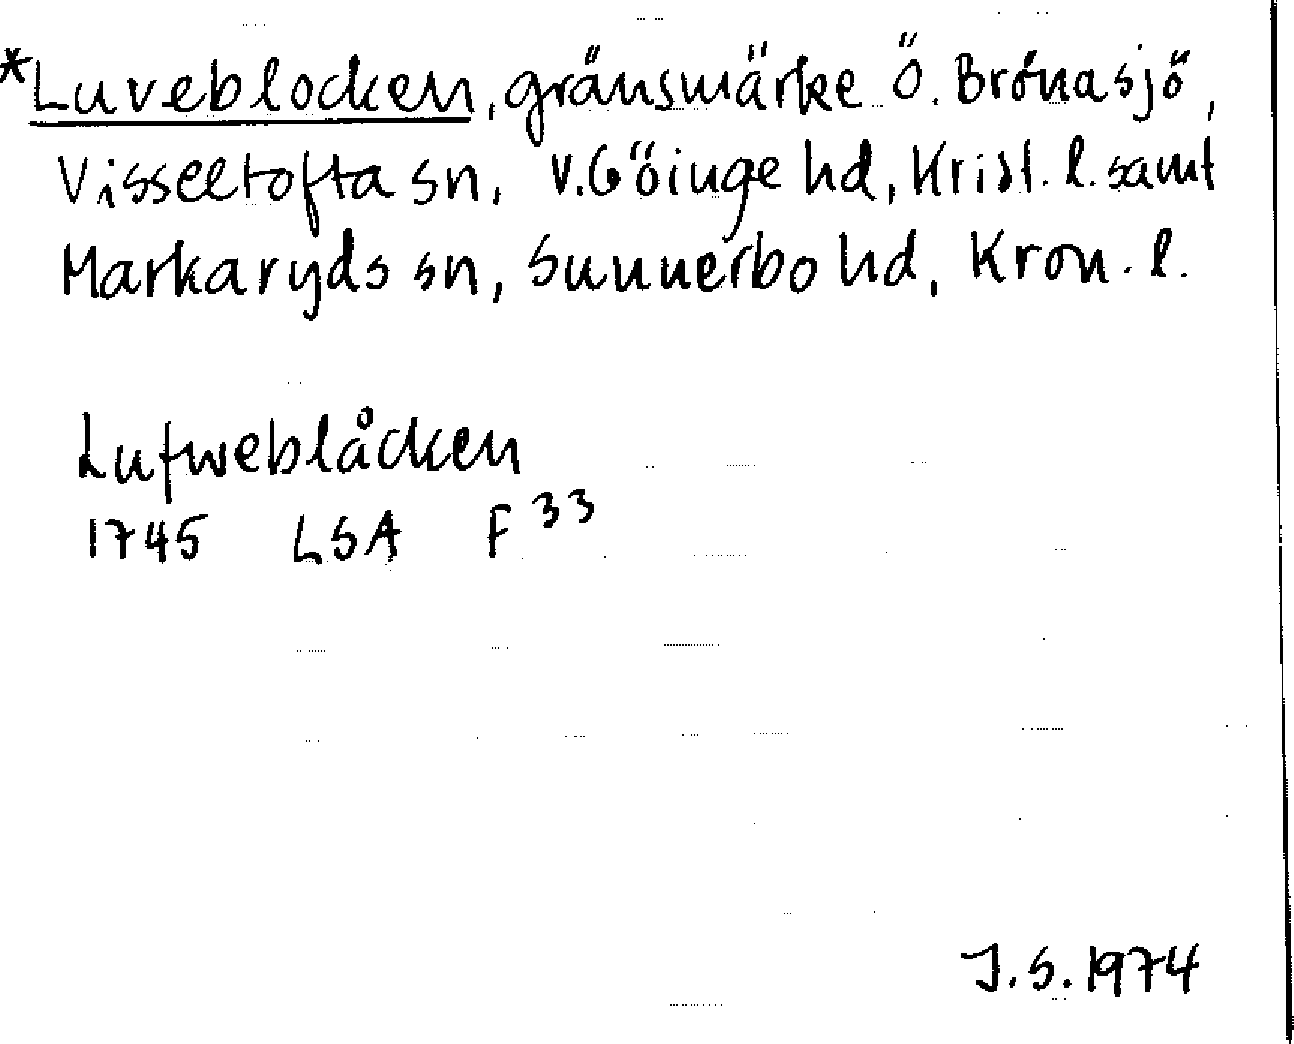 *Luveblocken, gränsmärke Ö. Brönasjö,
Visseltofta sn, V. Göinge hd, Krist. l. samt
Markaryds sn, Sunnerbo hd, Kron. l.
Lufweblåcken
1745 LSA F 33
J.S. 1974